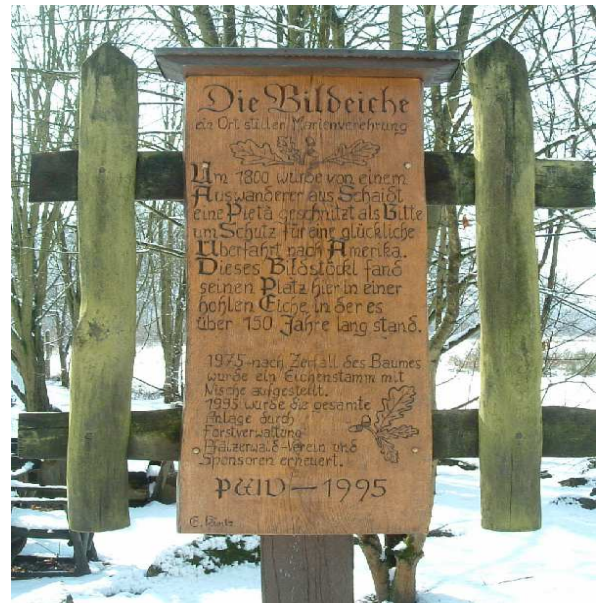 Die Bildeiche
ein Ort stiller Marienverehrung
Um 1800 wurde von einem
Auswanderer aus Schaidt
eine Pietà geschnitzt als Bitte
um Schutz für eine glückliche
Überfahrt nach Amerika.
Dieses Bildstöckl fand
seinen Platz hier in einer
hohlen Eiche in der es
über 150 Jahre lang stand.
1975-nach Zerfall des Baumes
wurde ein Eichenstamm mit
Nische aufgestellt.
1995 wurde die gesamte
Anlage durch
Forstverwaltung
Pfälzerwald-Verein und
Sponsoren erneuert.
PWV — 1995